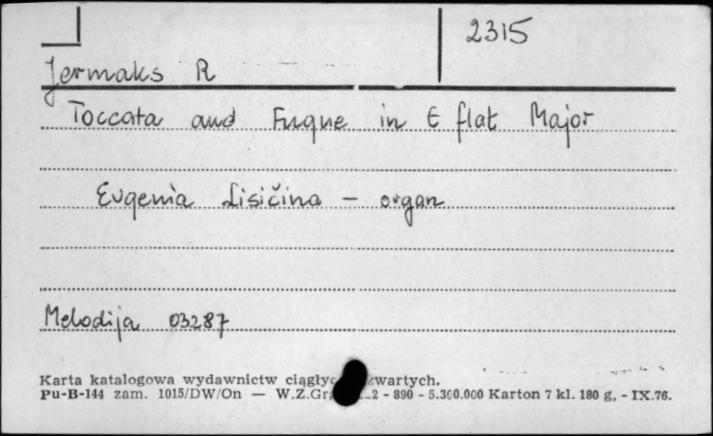 2315
Jermaks R
Toccata and Fugue in E flat Major
Evgenia Lisičina - organ
Melodija 03287
Karta katalogowa wydawnictw ciągłyc zwartych.
Pu-B-144 zam. 1015/DW/On — W.Z.Gr 2 - 890 - 5.300.000 Karton 7 kl. 180 g. - IX.76.